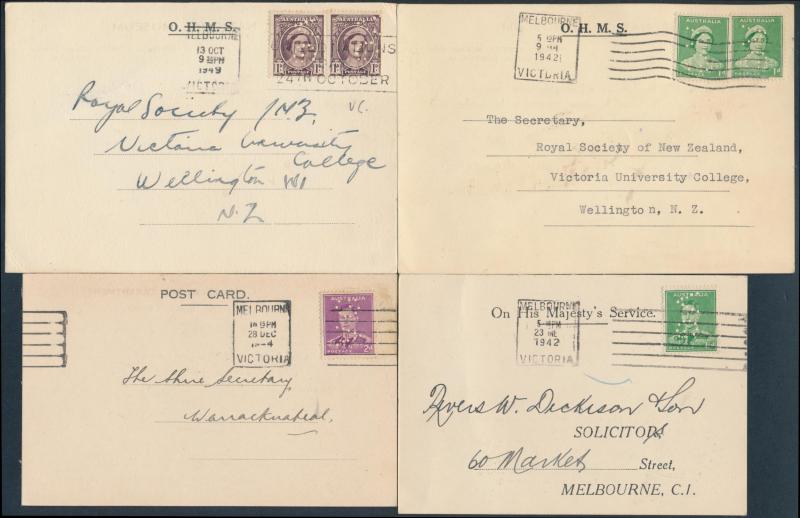 O. H. M. S.
MELBOURNE
13 OCT
1949
VICTORIA
AUSTRALIA
AUSTRALIA
24TH OCTOBER
Royal Society / N.Z.
V.C.
Victoria University
College
Wellington W1
N.Z
O. H. M. S.
MELBOURNE
1942
VICTORIA
AUSTRALIA
AUSTRALIA
1d
The Secretary,
Royal Society of New Zealand,
Victoria University College,
Wellington, N. Z.
POST CARD.
MELBOURNE
28 DEC
VICTORIA
AUSTRALIA
POSTAGE 2d
The Shire Secretary,
Warracknabeal,
On His Majesty's Service.
MELBOURNE
1942
VICTORIA
AUSTRALIA
W. Dickeson & Son
SOLICITOR
60 Market Street,
MELBOURNE, C.1.